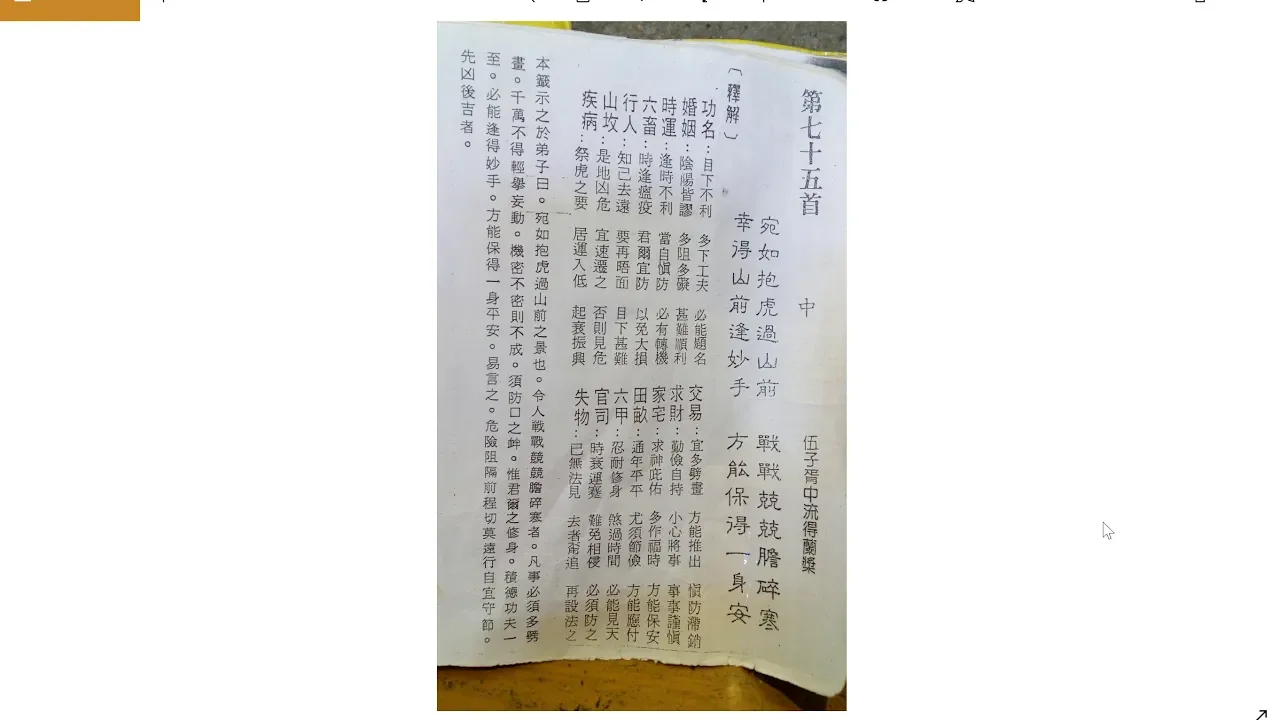 第七十五首　中　伍子胥中流得蘭槳
宛如抱虎過山前　戰戰兢兢膽碎寒
幸得山前逢妙手　方能保得一身安
〔釋解〕
功名：目下不利　多下工夫　必能題名
婚姻：陰陽皆謬　多阻多礙　甚難順利
時運：逢時不利　當自慎防　必有轉機
六畜：時逢瘟疫　君爾宜防　以免大損
行人：知己去遠　要再晤面　目下甚難
山坟：是地凶危　宜速遷之　否則見危
疾病：祭虎之要　居運入低　起衰振興
交易：宜多劈畫　方能推出　慎防滯銷
求財：勤儉自持　小心將事　事事謹慎
家宅：求神庇佑　多作福時　方能保安
田畝：通年平平　尤須節儉　方能應付
六甲：忍耐修身　煞過時間　必能見天
官司：時衰運蹇　難免相侵　必須防之
失物：已無法見　去者甭追　再設法之
本籤示之於弟子曰。宛如抱虎過山前之景也。令人戰戰兢兢膽碎寒者。凡事必須多劈
畫。千萬不得輕舉妄動。機密不密則不成。須防口之衅。惟君爾之修身。積德功夫一
至。必能逢得妙手。方能保得一身平安。易言之。危險阻隔前程切莫遠行自宜守節。
先凶後吉者。